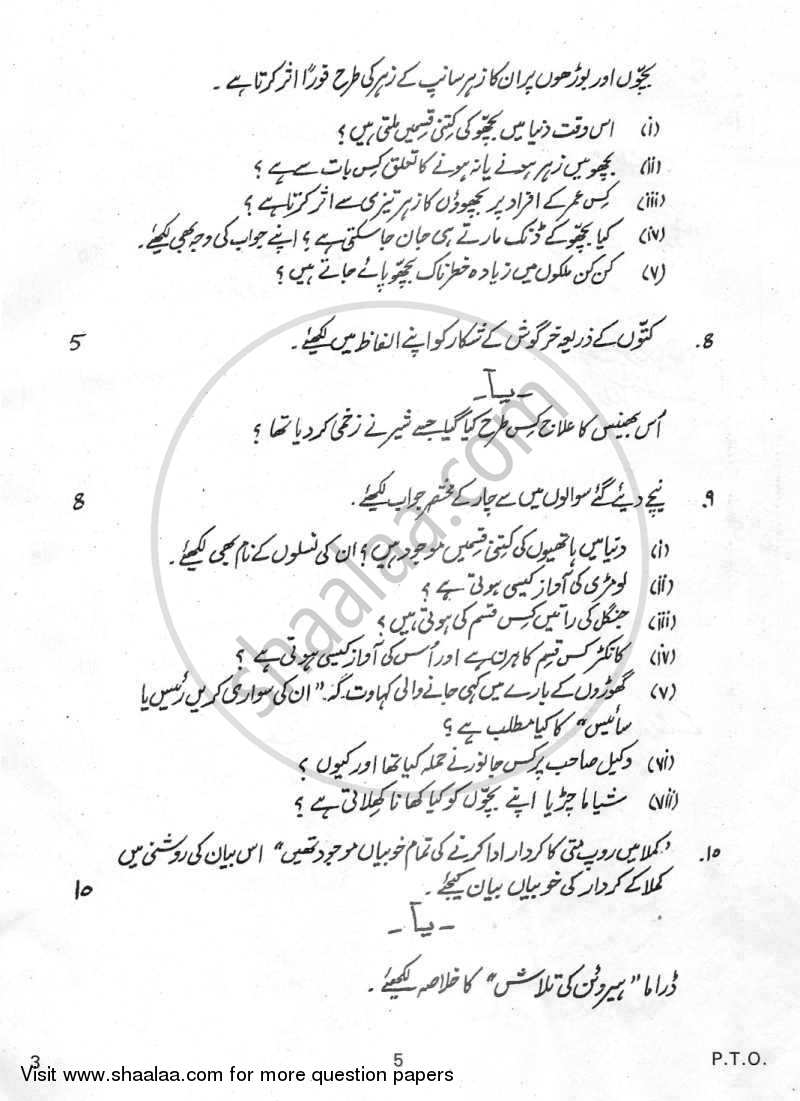 بچّوں اور بوڑھوں پر ان کا زہر سانپ کے زہر کی طرح فوراً اثر کرتا ہے ۔
(i) اس وقت دنیا میں بچھّو کی کتنی قسمیں ملتی ہیں ؟
(ii) بچھو میں زہر ہونے یا نہ ہونے کا تعلق کس بات سے ہے ؟
(iii) کس عمر کے افراد پر بچھوؤں کا زہر تیزی سے اثر کرتا ہے ؟
(iv) کیا بچھّو کے ڈنک مارتے ہی جان جا سکتی ہے ؟ اپنے جواب کی وجہ بھی لکھئے ۔
(v) کن کن ملکوں میں زیادہ خطرناک بچھّو پائے جاتے ہیں ؟
8. کتّوں کے ذریعہ خرگوش کے شکار کو اپنے الفاظ میں لکھئے ۔ 5
- یا -
اُس بھینس کا علاج کس طرح کیا گیا جسے شیر نے زخمی کر دیا تھا ؟
۹. نیچے دیئے گئے سوالوں میں سے چار کے مختصر جواب لکھئے ۔ 8
(i) دنیا میں ہاتھیوں کی کتنی قسمیں موجود ہیں ؟ ان کی نسلوں کے نام بھی لکھئے ۔
(ii) لومڑی کی آواز کیسی ہوتی ہے ؟
(iii) جنگل کی راتیں کس قسم کی ہوتی ہیں ؟
(iv) کانکڑ کس قسم کا ہرن ہے اور اُس کی آواز کیسی ہوتی ہے ؟
(v) گھوڑوں کے بارے میں کہی جانے والی کہاوت کہ "ان کی سواری کریں رئیس یا
سائیس" کا کیا مطلب ہے ؟
(vi) وکیل صاحب پر کس جانور نے حملہ کیا تھا اور کیوں ؟
(vii) شیاما چڑیا اپنے بچّوں کو کیا کھانا کھلاتی ہے ؟
۱۰. "کملا میں روپ متی کا کردار ادا کرنے کی تمام خوبیاں موجود تھیں" اس بیان کی روشنی میں
کملا کے کردار کی خوبیاں بیان کیجئے ۔ 10
- یا -
ڈراما "ہیروئن کی تلاش" کا خلاصہ لکھئے ۔
shaalaa.com
3 5 P.T.O.
Visit www.shaalaa.com for more question papers